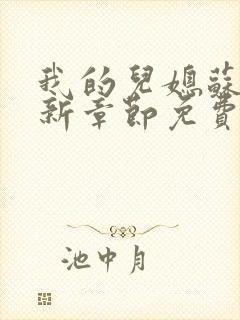 我的兒媳蘇
新章節免費
池中月